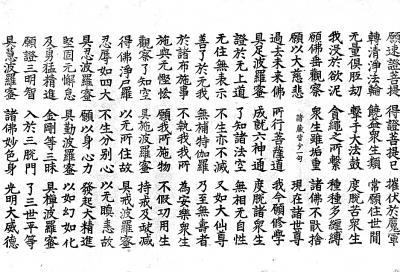 願速證菩提 得證菩提已 摧伏於魔軍
轉清淨法輪 饒益衆生類 常願住世間
无量俱胝劫 擊于大法鼓 度脫苦衆生
我沒於欲泥 貪繩之所繫 種種多纏縛
願佛垂觀察 衆生雖垢重 諸佛不猒捨
願以大慈悲 諸藏皆少一句 現在諸世尊
過去未來佛 所行菩薩道 我今願修學
具足波羅蜜 成就六神通 度脫諸衆生
證於无上道 了知諸法空 無相无自性
无住無表示 不生亦不滅 又如大仙尊
善了於无我 無補特伽羅 乃至無壽者
於諸布施事 不執我我所 為安樂衆生
施與无慳悋 願我所施物 不假功用生
觀察了知空 具施波羅蜜 持戒及破減
得佛淨尸羅 以无所住故 具戒波羅蜜
忍辱如四大 不生分别心 以无瞋恚故
具忍波羅蜜 願以身心力 發起大精進
堅固元懈怠 具勤波羅蜜 以如幻如化
及勇猛精進 金剛等三昧 具禪波羅蜜
願證三明智 入於三脫門 了三世平等
具慧波羅蜜 諸佛妙色身 光明大威德